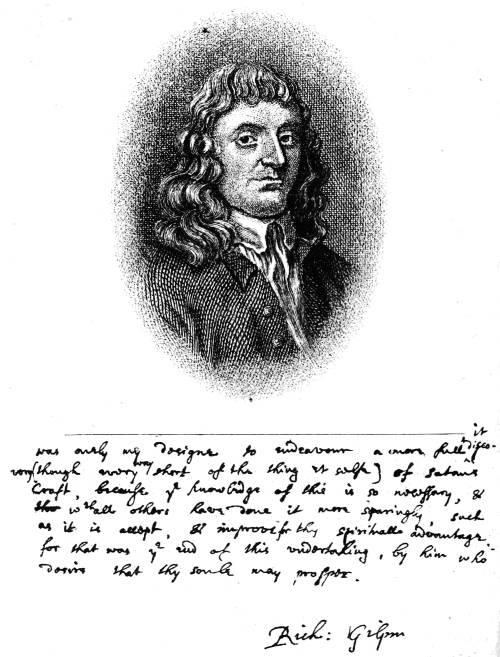 it
was onely my designe to endeavour a more full disco-
very (though every way short of the thing it selfe) of Satans
Craft, because ye knowledge of this is so necessary, &
withall others have done it more sparingly, such
as it is accept, & improve for thy spirituall advantage,
for that was ye end of this undertaking, by him who
desires that thy soule may prosper.
Rich: Gilpin